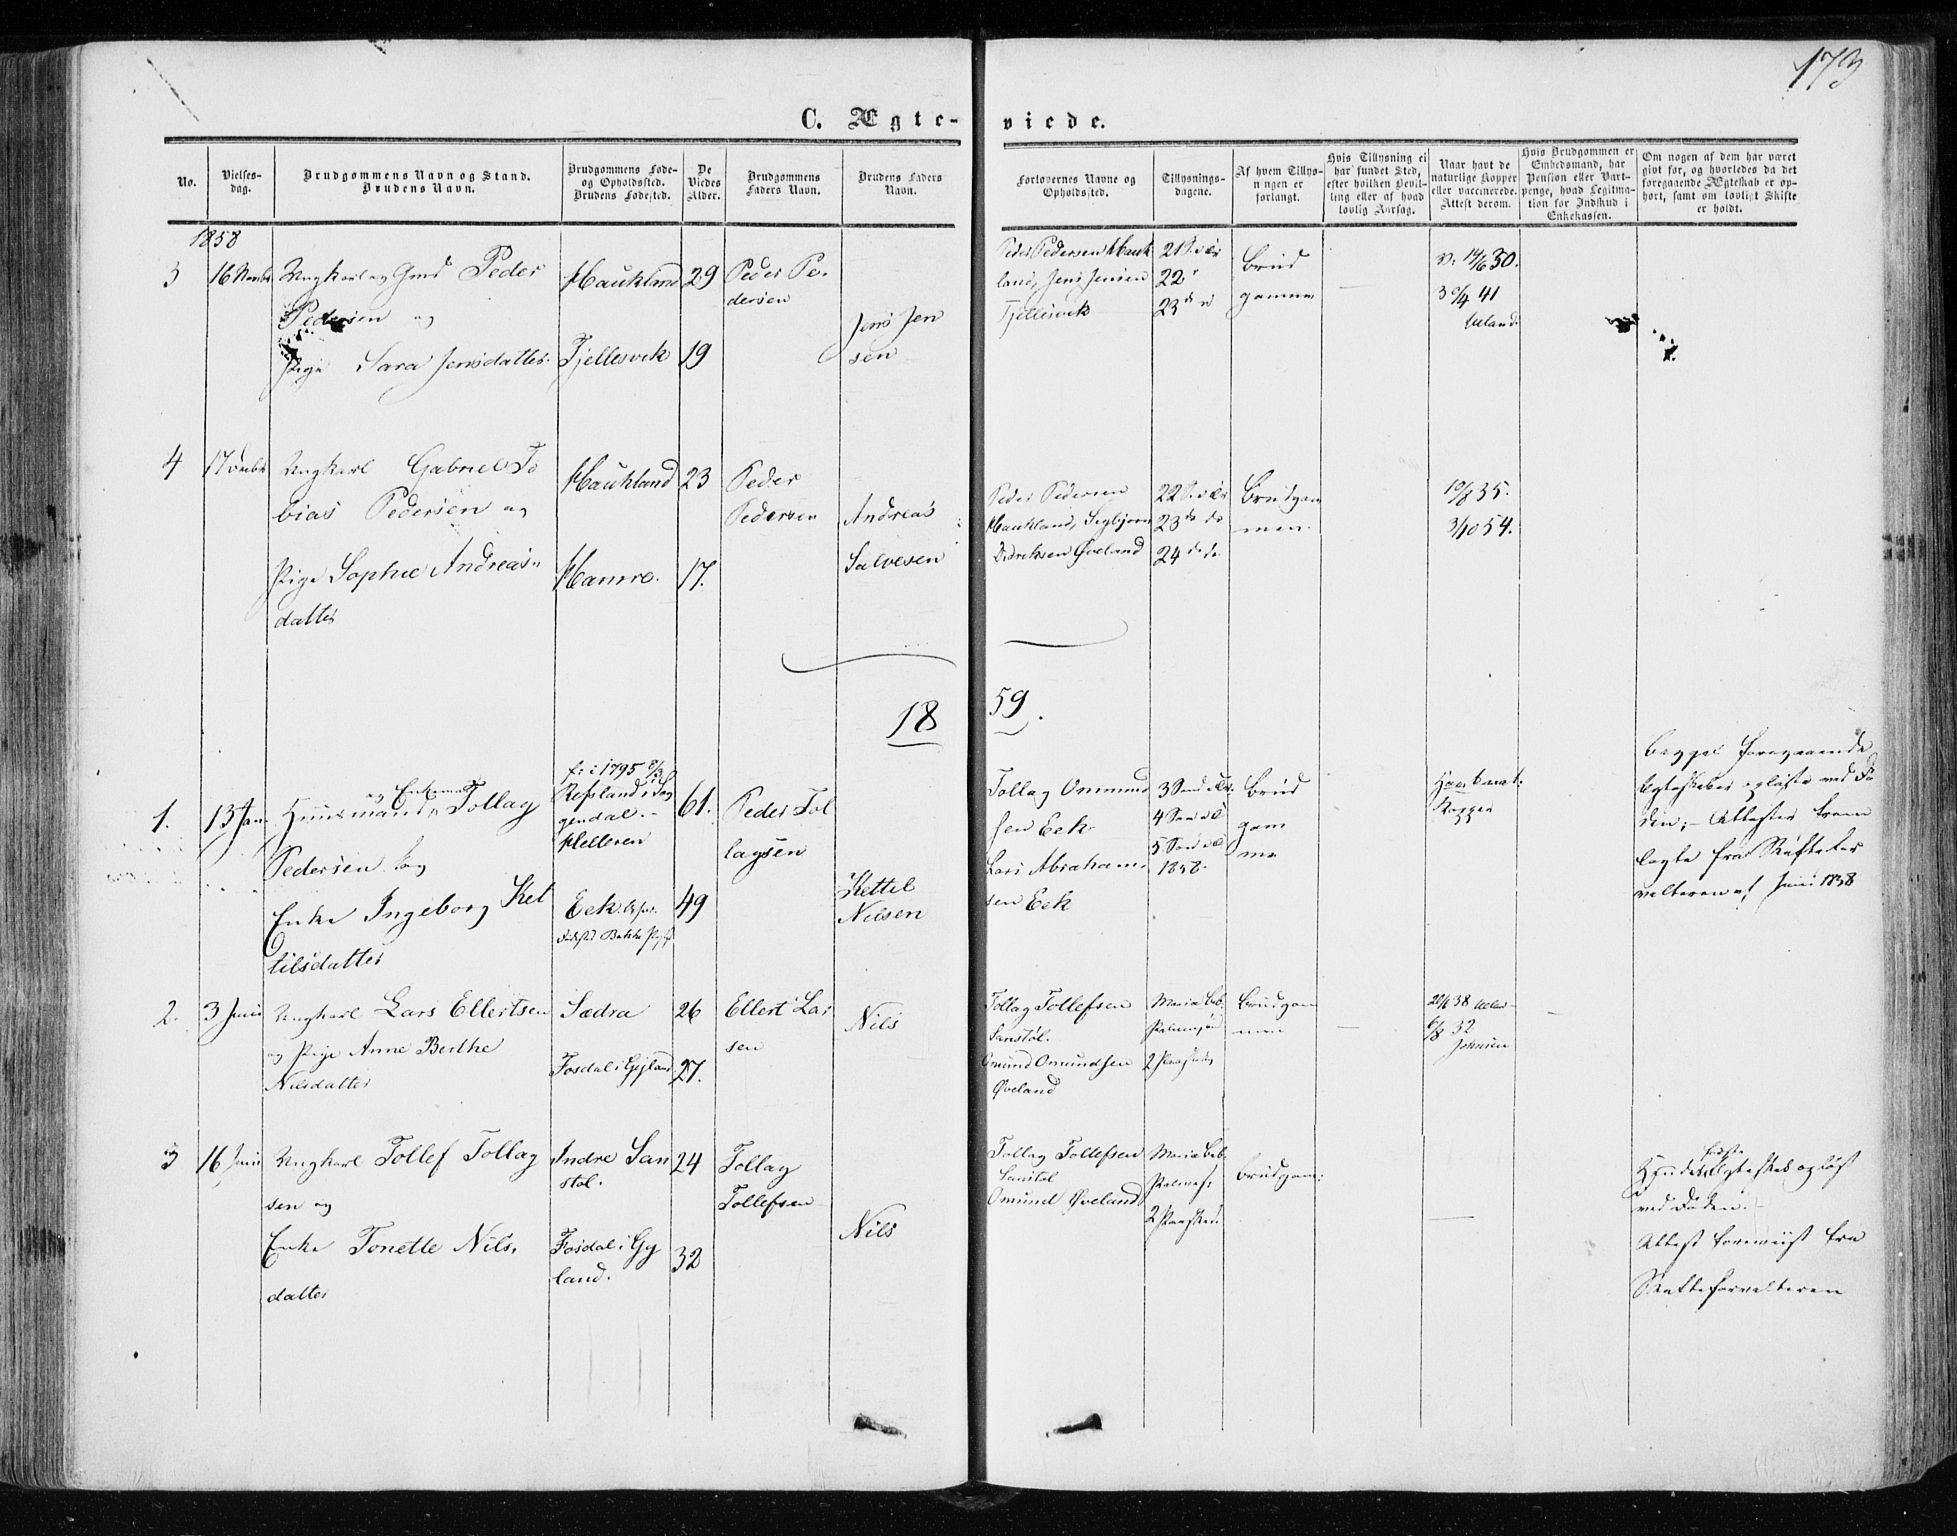 173
C. Ægte-viede.
No.
Vielses-
dag.
Brudgommens Navn og Stand.
Brudens Navn.
Brudgommens Føde-
og Opholdssted.
Brudens Fødested.
De
Viedes
Alder.
Brudgommens
Faders Navn.
Brudens Faders
Navn.
Forlovernes Navne og
Opholdssted.
Tillysnings-
dagene.
Af hvem Tillys-
ningen er
forlangt.
Hvis Tillysning ei
har fundet Sted,
efter hvilken Bevil-
ling eller af hvad
lovlig Aarsag.
Naar havt de
naturlige Kopper
eller vaccinerede.
Attest derom.
Hvis Brudgommen er
Embedsmand, har
Pension eller Vart-
penge, hvad Legitima-
tion for Indskud i
Enkekassen.
Om nogen af dem har været
gift før, og hvorledes da det
foregaaende Ægteskab er op-
hørt, samt om lovligt Skifte
er holdt.
1858
3
16
Ungkarl og Gmd Peder
Pedersen og
Pige Sara Jensdatter
Haukland
Fjellesvek
29
19
Peder Pe-
dersen
Jens Jen
sen
Peder Pedersen Hauk
land, Jens Jensen
Fjellesvek
21
22
23
Brud
gommen
14/6 30.
30/4 41
Ueland
4
17
Ungkarl Gabriel To
bias Pedersen og
Pige Sophie Andreas-
datter
Haukland
Hamre.
23
17.
Peder
Pedersen
Andreas
Salvesen
Peder Pedersen
Haukland, Segbjørn
Didriksen Øveland
22
23 do do
24 do do
Brudgom
men.
10/8 35.
3/10 54.
1859.
1.
13 Jan
Huusmand og Enkemand Tollag
Pedersen og
Enke Ingeborg Ket
tilsdatter
f: i 1795
Refsland i Sog
gendal. -
Helleren
Eek
61.
49
Peder Tol
lagsen
Kettel
Nilsen
Tollag Ommund
sen Eek
Lars Abraham-
sen Eek
3
4
5
1858.
Brud
gom
me
Kopper
begges foregaaende
Ægteskaber opløste ved Dø
den; - Attester frem
lagte fra Skiftefor
valteren af Juni 1858
2.
3 Juni
Ungkarl Lars Ellertsen
og Pige Anne Berthe
Nilsdatter
Sædra
Fosdal i Gyland
26
27.
Ellert Lar
sen
Nils
Tollag Tollefsen
Sanstøl.
Omund Omundsen
Øveland
Maria Beb.
Palmesøn
2 Paaskedag
Brudgom
men
38
6/8 32
Johnsen
3
16 Juni
Ungkarl Tollef Tollag
sen og
Enke Tonette Nils-
datter
Indre San
støl.
Fosdal i Gy
land.
24
32
Tollag
Tollefsen
Nils
Tollag Tollefsen
Sanstøl
Omund Øveland
Maria Beb.
Palmes:
2 Paasked.
Brudgom:
Hendes første Ægteskab opløst
ved Døden.
Attest foreviist fra
Skifteforvalteren